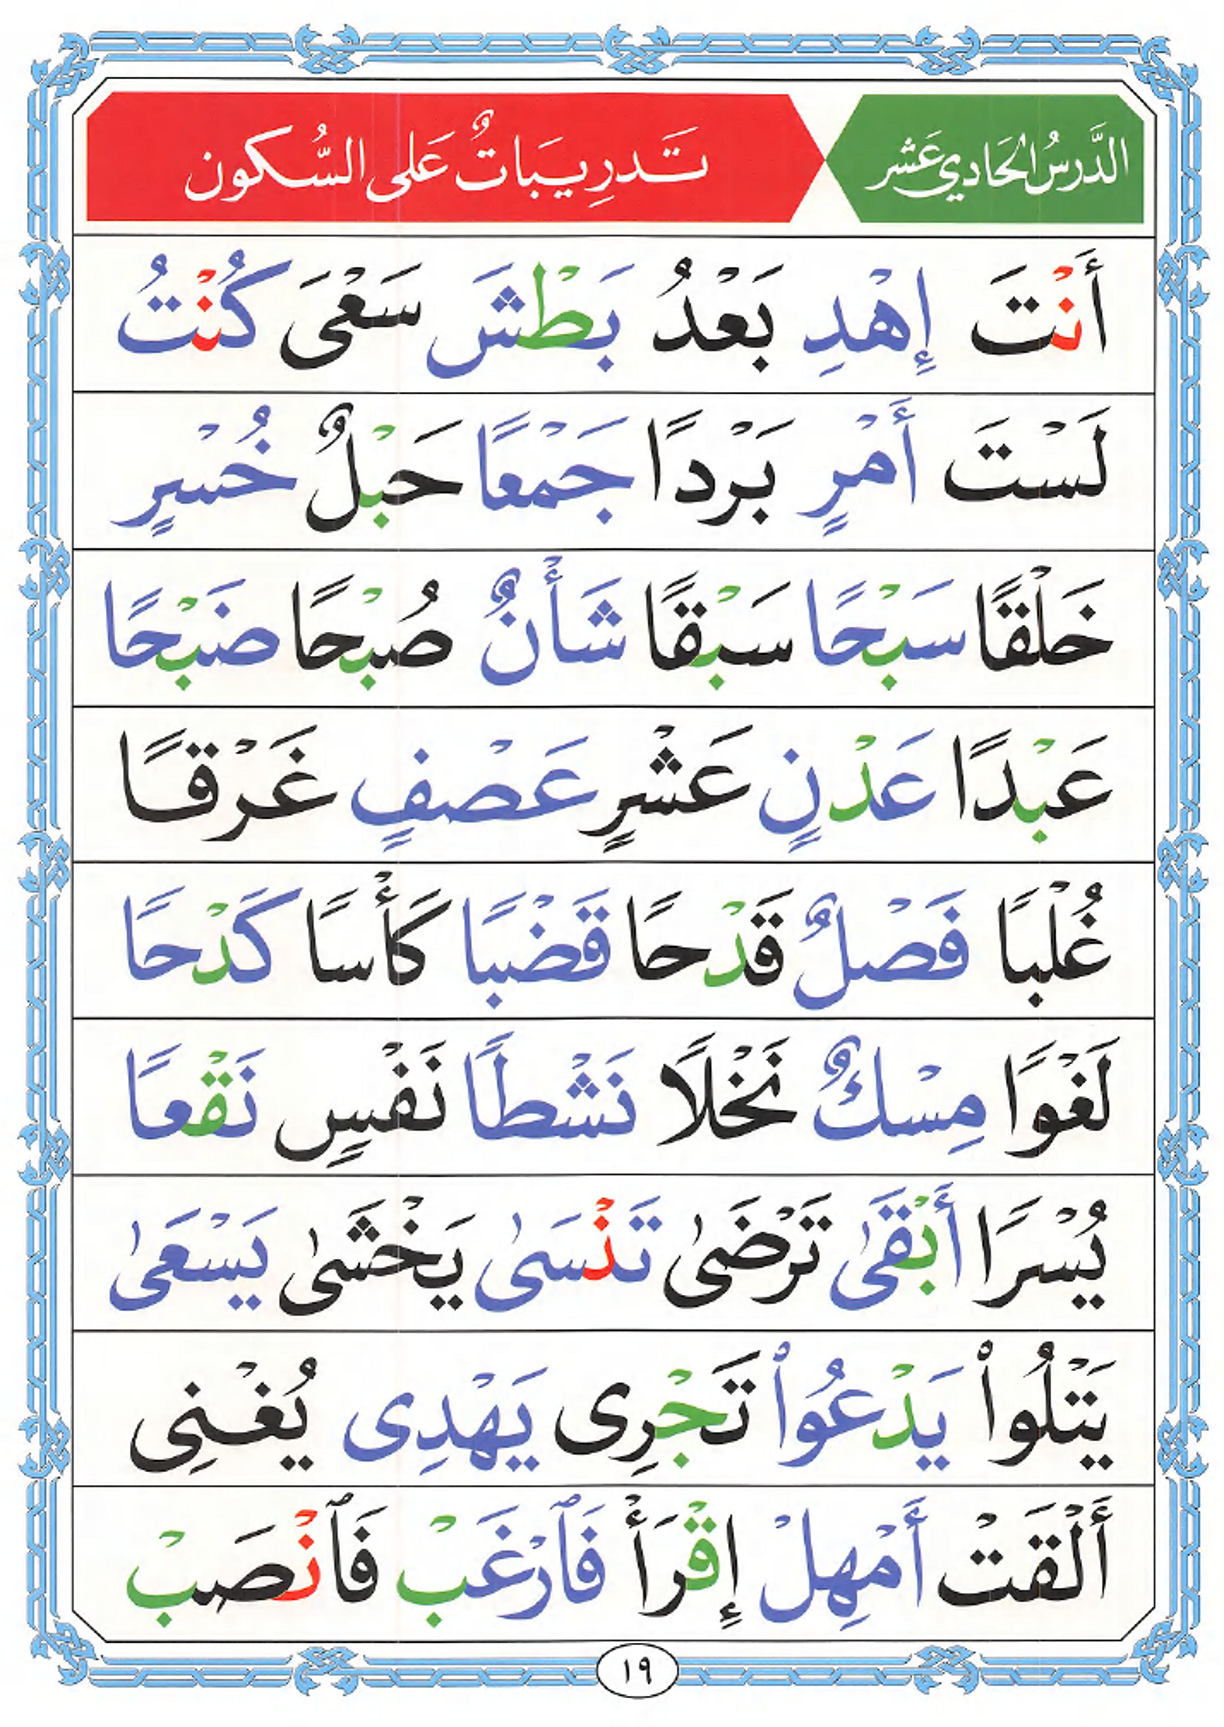 الدَّرسُ الحَادي عَشر
تَدرِيبَاتٌ عَلى السُّكون
أَنْتَ إِهْدِ بَعْدُ بَطْشَ سَعْىَ كُنْتُ
لَسْتَ أَمْرٍ بَرْدًا جَمْعًا حَبْلٌ خُسْرٍ
خَلْقًا سَبْحًا سَبْقًا شَأْنٌ صُبْحًا ضَبْحًا
عَبْدًا عَدْنٍ عَشْرٍ عَصْفٍ غَرْقًا
غُلْبًا فَصْلٌ قَدْحًا قَضْبًا كَأْسًا كَدْحًا
لَغْوًا مِسْكٌ نَخْلًا نَشْطًا نَفْسٍ نَقْعًا
يُسْرًا أَبْقَىٰ تَرْضَىٰ تَنْسَىٰ يَخْشَىٰ يَسْعَىٰ
يَتْلُواْ يَدْعُواْ تَجْرِى يَهْدِى يُغْنِى
أَلْقَتْ أَمْهِلْ إِقْرَأْ فَٱرْغَبْ فَٱنْصَبْ
١٩